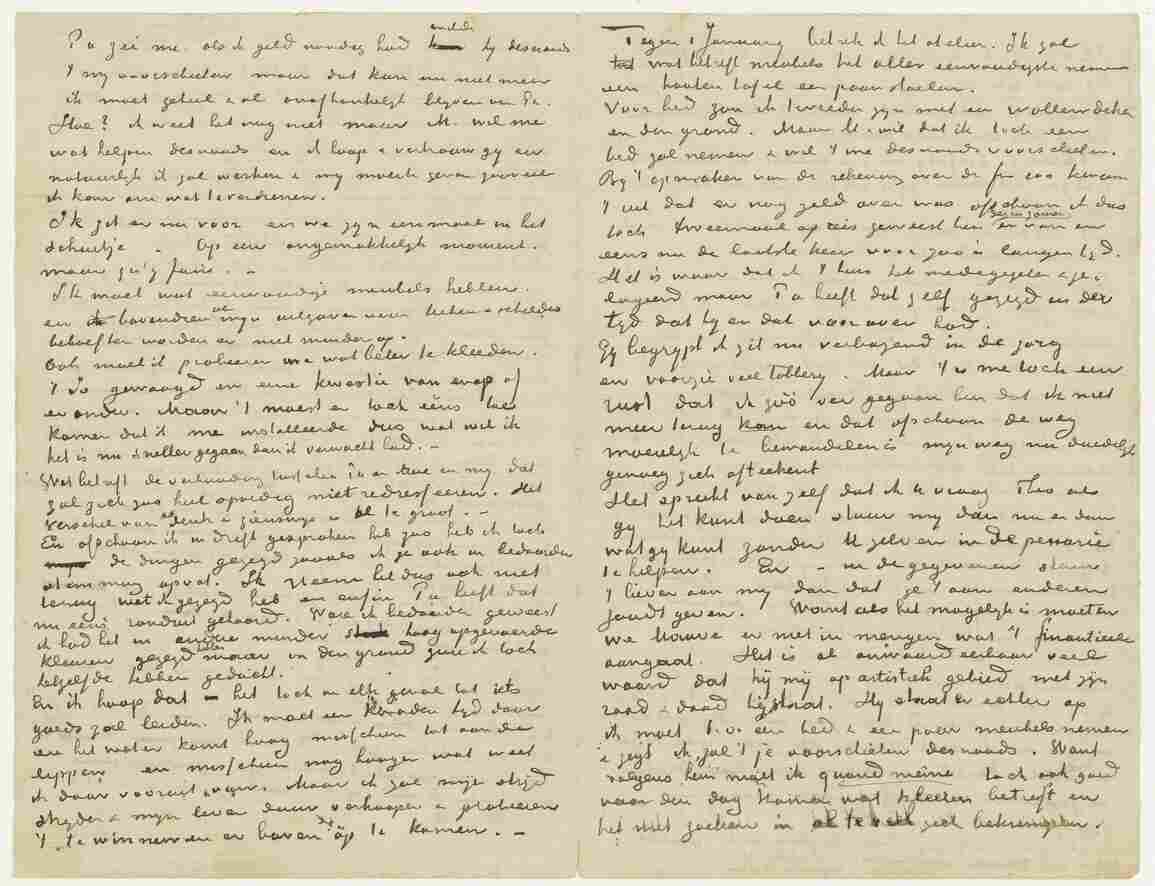 Pa zei me. als ik geld noodig had zoude hij desnoods
't mij voorschieten maar dat kan nu niet meer
ik moet geheel & al onafhankelijk blijven van Pa.
Hoe? ik weet het nog niet maar M. wil me
wat helpen desnoods en ik hoop & vertrouw gij en
natuurlijk ik zal werken & mijn moeite geven zooveel
ik kan om wat te verdienen.
Ik zit er nu voor en we zijn eenmaal in het
schuitje. Op een ongemakkelijk moment.
maar
Ik moet wat eenvoudige meubels hebben.
en bovendien mijn uitgaven voor teeken & schilder
behoeften worden er niet minder op.
Ook moet ik probeeren me wat beter te kleeden.
't Is gewaagd en eene kwestie van erop of
eronder. Maar 't moest er toch eens toe
komen dat ik me installeerde dus wat wil ik
het is nu sneller gegaan dan ik verwacht had. –
Wat betreft de verhouding tusschen Pa en en mij dat
zal zich zoo heel spoedig niet redresseeren. Het
verschil van denk & zienswijze is te groot. –
En ofschoon ik in drift gesproken heb zoo heb ik toch
de dingen gezegd zooals ik ze ook in bedaarder
stemming opvat. Ik neem het dus ook niet
terug wat ik gezegd heb en enfin Pa heeft dat
nu eens ronduit gehoord. Ware ik bedaarder geweest
ik had het in andere minder hoog opgevoerde
kleuren gezegd maar in den grond zou ik toch
hetzelfde hebben gedacht.
En ik hoop dat – het toch in elk geval tot iets
goeds zal leiden. Ik moet een kwaden tijd door
en het water komt hoog misschien tot aan de
lippen en misschien nog hooger wat weet
ik daar vooruit van. Maar ik zal mijn strijd
strijden & mijn leven duur verkoopen & probeeren
't te winnen en er boven op te komen. –
Tegen 1 Januarij betrek ik het atelier. Ik zal
wat betreft meubels het aller eenvoudigste nemen
een houten tafel een paar stoelen.
Voor bed zou ik tevreden zijn met een wollen deken
en den grond. Maar M. wil dat ik toch een
bed zal nemen & wil 't me desnoods voorschieten.
Bij 't opmaken van de rekening over de fr. 100 kwam
't uit dat er nog geld over was ofschoon ik dus
toch tweemaal op reis geweest ben eens van en
eens nu de laatste keer voor zoo'n langen tijd.
Het is waar dat ik 't huis heb medegegeten & ge-
logeerd maar Pa heeft dat zelf gezegd in der
tijd dat hij en dat voor over had.
Gij begrijpt ik zit nu verbazend in de zorg
en voorzie veel tobberij. Maar 't is me toch een
rust dat ik zóó ver gegaan ben dat ik niet
meer terug kan en dat ofschoon de weg
moeielijk te bewandelen is mijn weg nu duidelijk
genoeg zich afteekent
Het spreekt van zelf dat ik u vraag Theo als
gij het kunt doen stuur mij dan nu en dan
wat gij kunt zonder U zelven in de penarie
te helpen. En – in de gegevenen stuur
't liever aan mij dan dat je 't aan anderen
zoudt geven. Want als het mogelijk is moeten
we Mauve er niet in mengen wat 't financieele
aangaat. Het is al onwaardeerbaar veel
waard dat hij mij op artistiek gebied met zijn
raad & daad bijstaat. Hij staat er echter op
ik moet b.v. een bed & een paar meubels nemen
& zegt ik zal 't je voorschieten desnoods. Want
volgens hem moet ik quand même toch ook goed
voor den dag komen wat kleeren betreft en
het niet zoeken in al te veel zich bekrimpen.